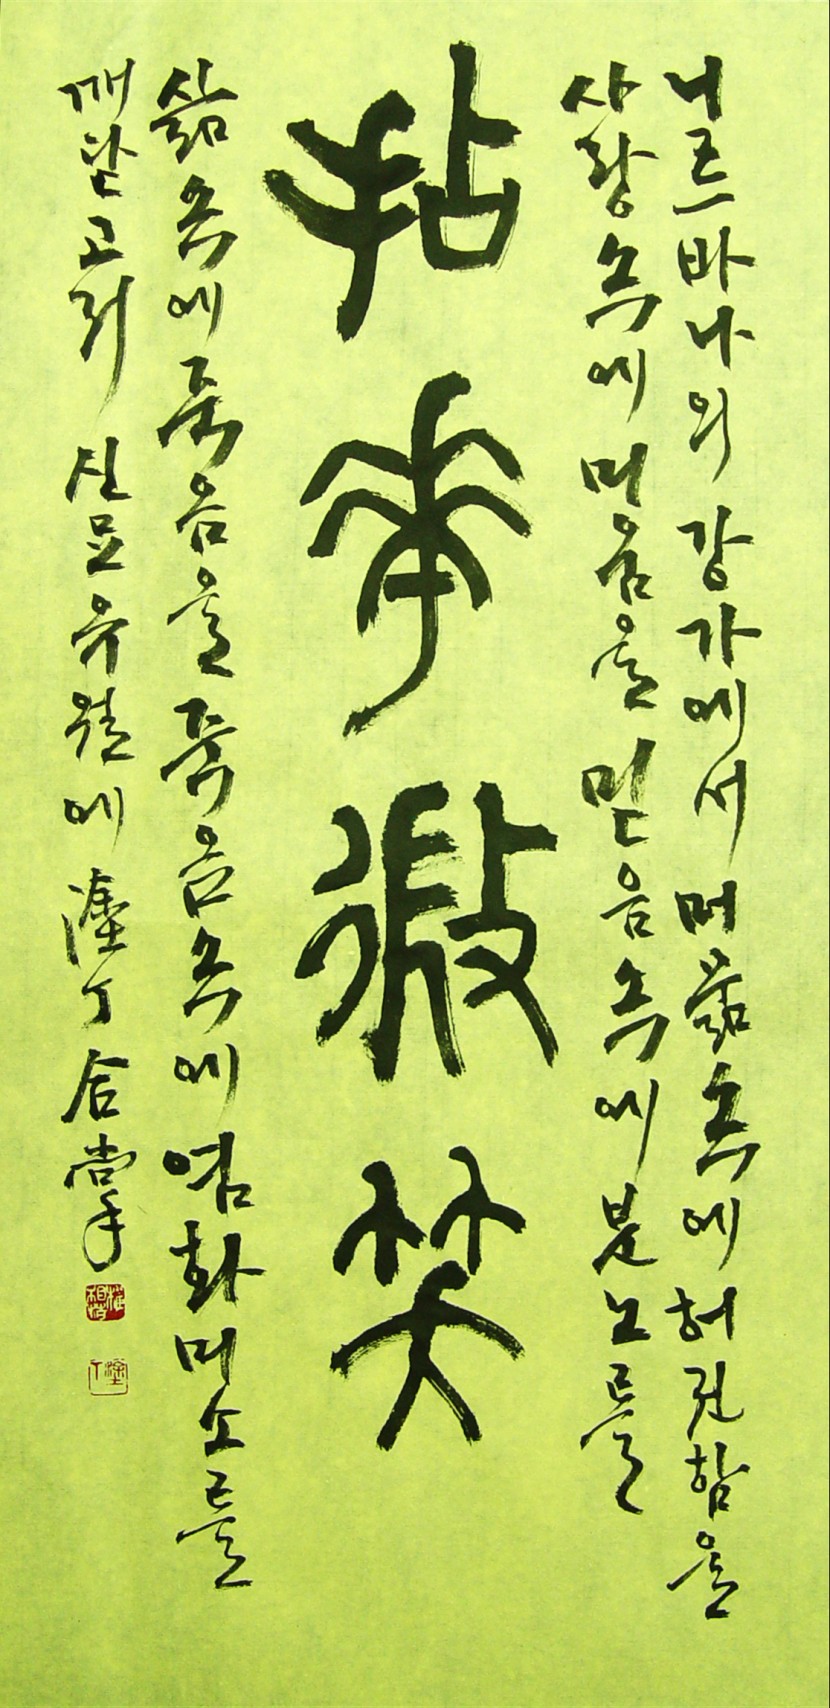 니르바나의 강가에서 머묾속에 허전함을
사랑속에 미움을 믿음속에 분노를
拈華微笑
삶속에 죽음을 죽음속에 염화미소를
깨닫고저 신묘유월에 塗丁合掌
權相浩
塗丁